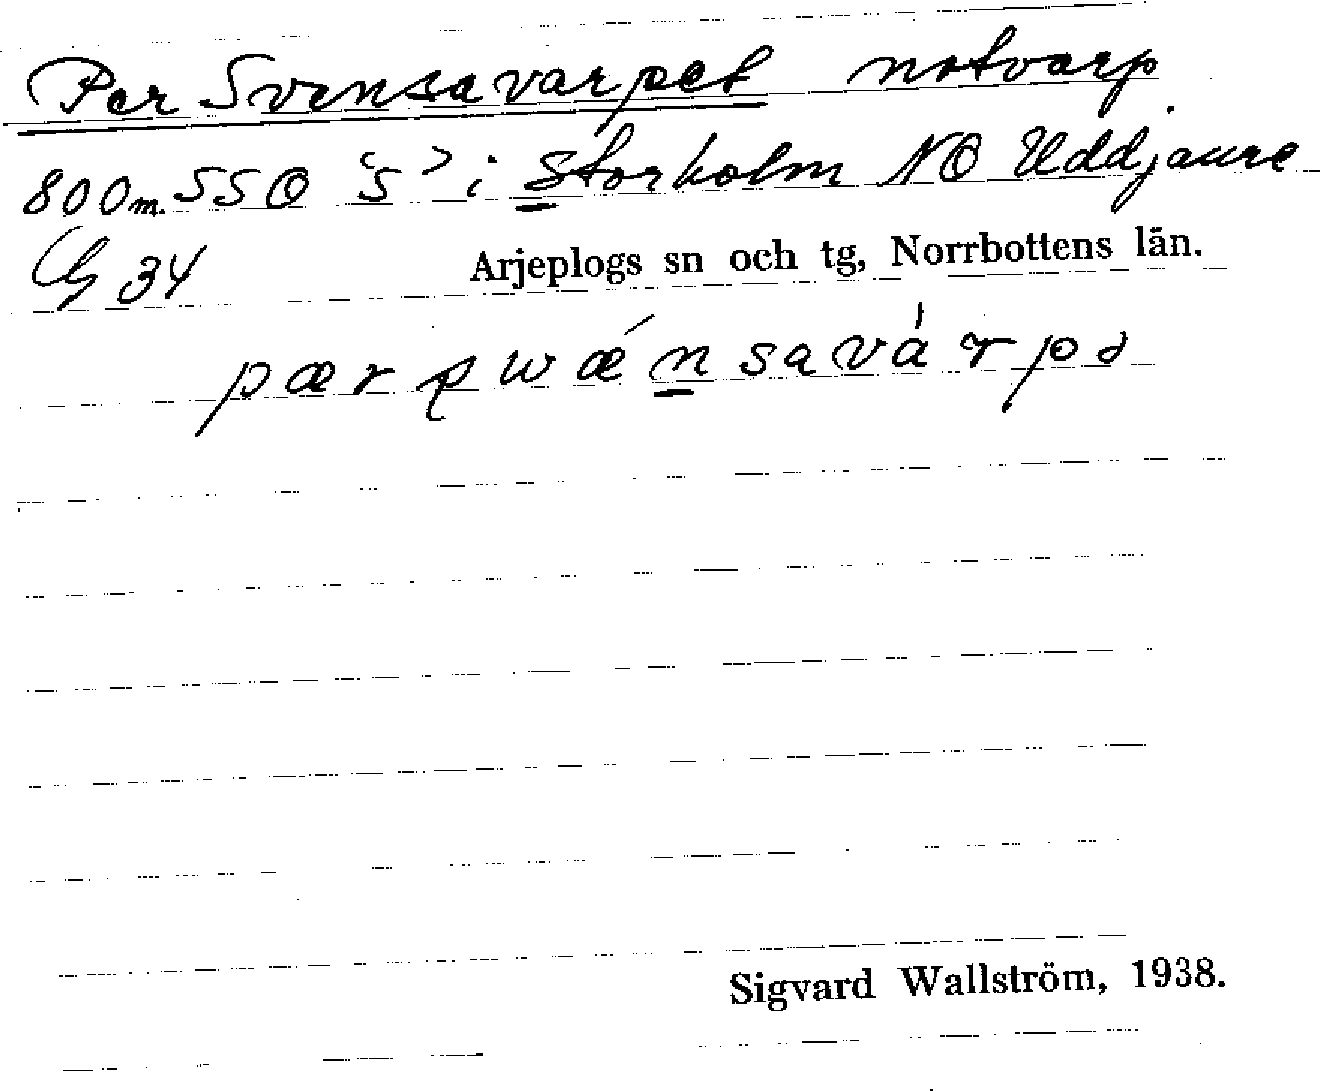 Per Svensavarpet notvarp.
800 m. SSO "S" i Storholm NO Uddjaure
34 Arjeplogs sn och tg, Norrbottens län.
Sigvard Wallström, 1938.